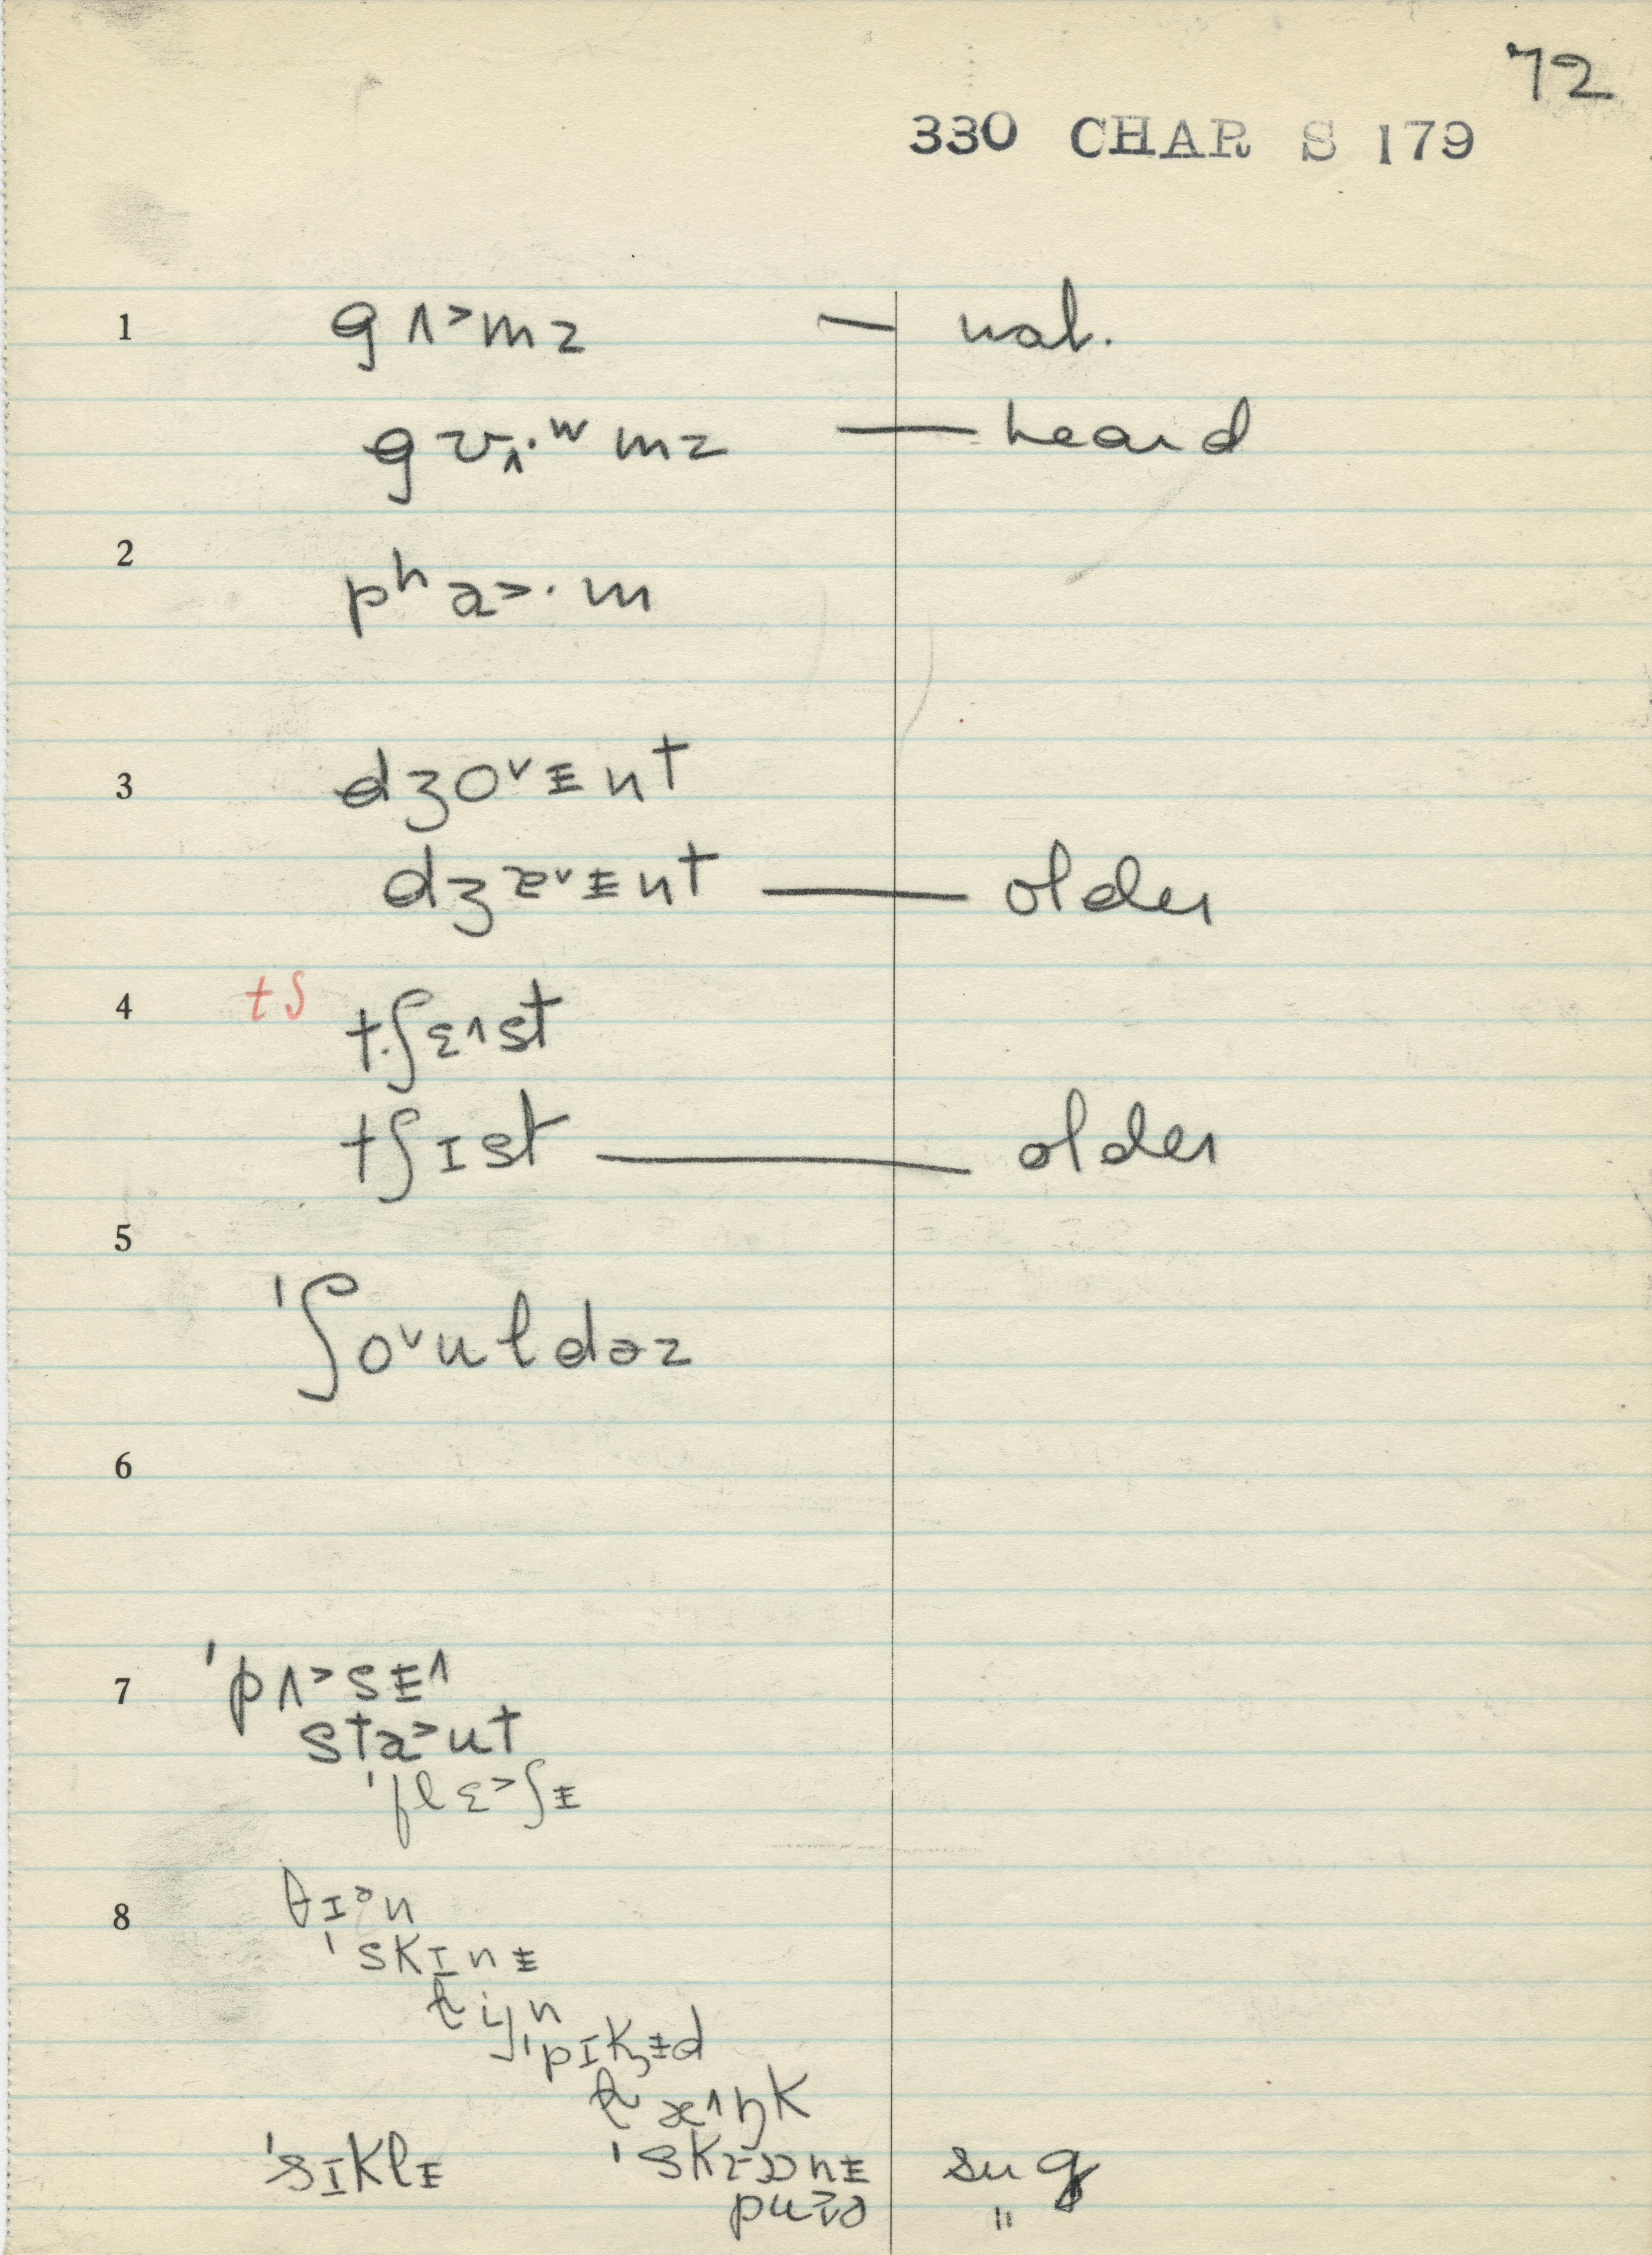 72
330 CHAR S 179
1 gʌ˃mz — nat.
gʊʌ·ʷmz — heard
2 pʰa˃·m
3 dʒo˅ᵻnt
dʒɐ˅ᵻnt — older
4 tʃ t·ʃɛ˄st
tʃɪst — older
5 ˈʃo˅ʊɫdəz
6
7 ˈpʌ˃sᵻ˄
sta˃ut
ˈflɛ˃ʃᵻ
8 θɪᵊn
ˈskɪnᵻ
ˈpɪkᵻd
ˈsɪklᵻ ˈskɹɔnᵻ sug
"